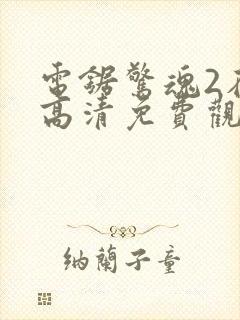 電鋸驚魂2
高清免費觀
納蘭子童